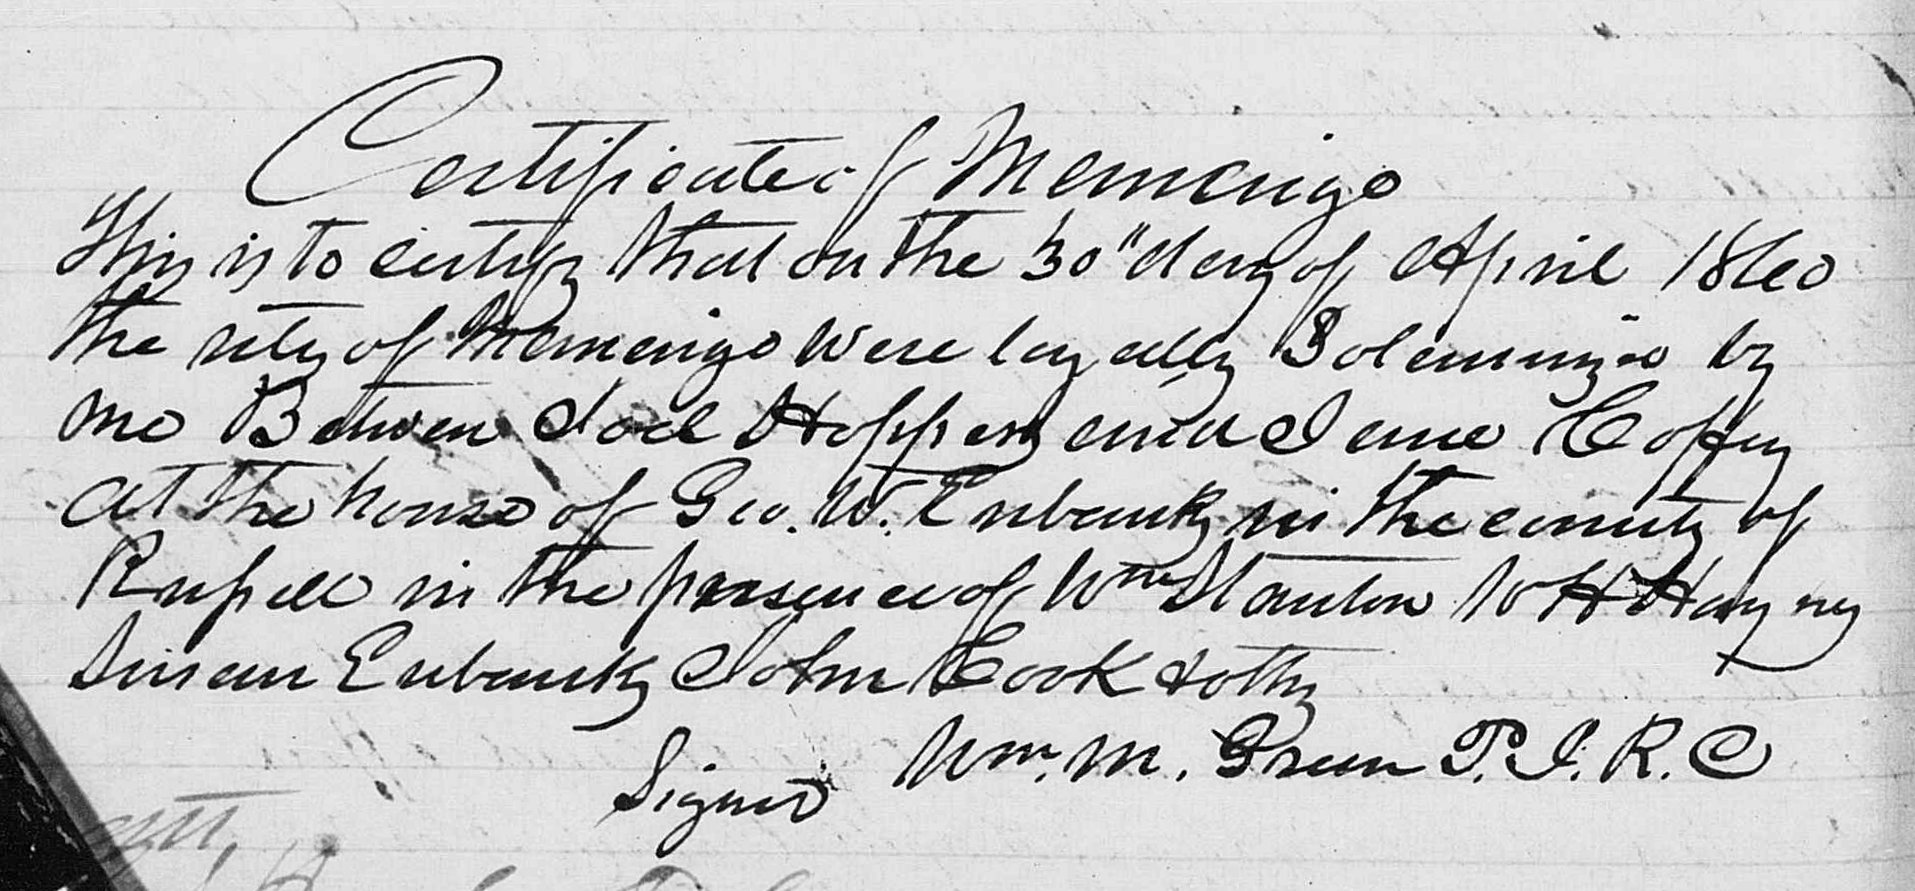 Certificate of Marriage
This is to certify that on the 30" day of April 1860
the rites of Marriage were legally Solemnized by
me Between Joel Hopper and Jane Coffey
at the house of Geo. W. Eubank in the county of
Russell in the presence of Wm Stanton W H Hayney
Susan Eubanks John Cook & oths
Signed Wm. M. Green P. J. R. C